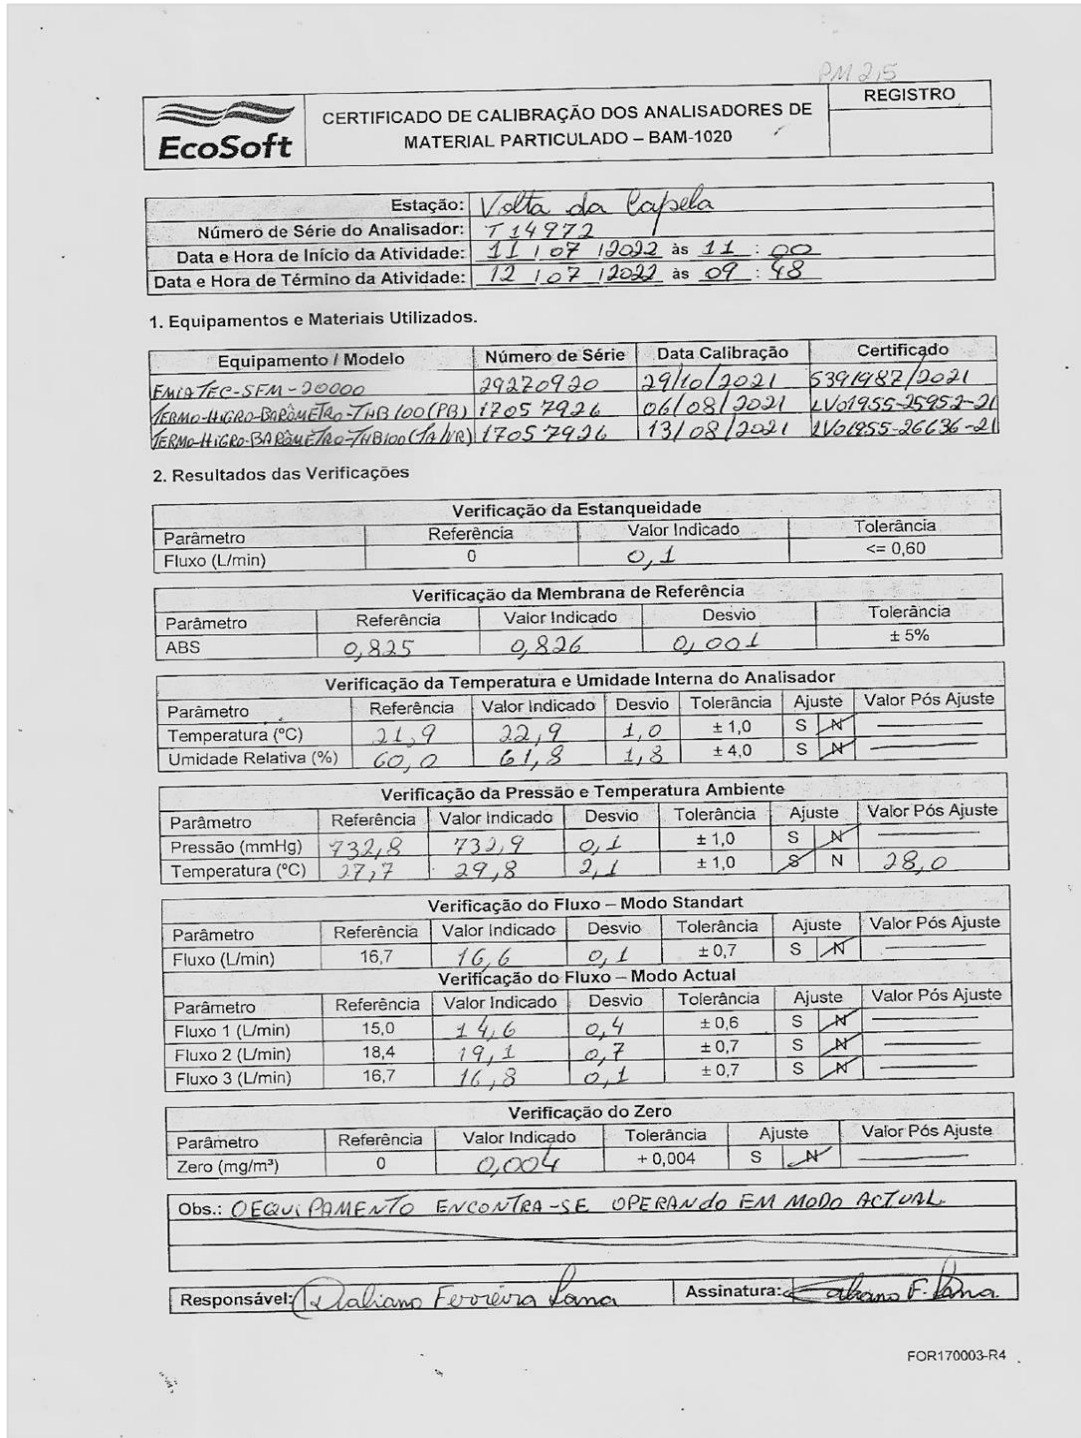 PM 2,5
EcoSoft
CERTIFICADO DE CALIBRAÇÃO DOS ANALISADORES DE
MATERIAL PARTICULADO – BAM-1020
REGISTRO
Estação: Volta da Capela
Número de Série do Analisador: T14972
Data e Hora de Início da Atividade: 11/07/2022 às 11:00
Data e Hora de Término da Atividade: 12/07/2022 às 09:48
1. Equipamentos e Materiais Utilizados.
Equipamento / Modelo Número de Série Data Calibração Certificado
EMIATEC-SFM-20000 29270920 29/10/2021 S391987/2021
TERMO-HIGRO-BARÔMETRO-THB100(PB) 17057926 06/08/2021 LV01955-25952-21
TERMO-HIGRO-BARÔMETRO-THB100(TA/UR) 17057926 13/08/2021 LV01955-26636-21
2. Resultados das Verificações
Verificação da Estanqueidade
Parâmetro Referência Valor Indicado Tolerância
Fluxo (L/min) 0 0,1 <= 0,60
Verificação da Membrana de Referência
Parâmetro Referência Valor Indicado Desvio Tolerância
ABS 0,825 0,826 0,001 ± 5%
Verificação da Temperatura e Umidade Interna do Analisador
Parâmetro Referência Valor Indicado Desvio Tolerância Ajuste Valor Pós Ajuste
Temperatura (ºC) 21,9 22,9 1,0 ± 1,0 S N
Umidade Relativa (%) 60,0 61,8 1,8 ± 4,0 S N
Verificação da Pressão e Temperatura Ambiente
Parâmetro Referência Valor Indicado Desvio Tolerância Ajuste Valor Pós Ajuste
Pressão (mmHg) 732,8 732,9 0,1 ± 1,0 S N
Temperatura (ºC) 27,7 29,8 2,1 ± 1,0 S N 28,0
Verificação do Fluxo – Modo Standart
Parâmetro Referência Valor Indicado Desvio Tolerância Ajuste Valor Pós Ajuste
Fluxo (L/min) 16,7 16,6 0,1 ± 0,7 S N
Verificação do Fluxo – Modo Actual
Parâmetro Referência Valor Indicado Desvio Tolerância Ajuste Valor Pós Ajuste
Fluxo 1 (L/min) 15,0 14,6 0,4 ± 0,6 S N
Fluxo 2 (L/min) 18,4 19,1 0,7 ± 0,7 S N
Fluxo 3 (L/min) 16,7 16,8 0,1 ± 0,7 S N
Verificação do Zero
Parâmetro Referência Valor Indicado Tolerância Ajuste Valor Pós Ajuste
Zero (mg/m³) 0 0,004 + 0,004 S N
Obs.: O EQUIPAMENTO ENCONTRA-SE OPERANDO EM MODO ACTUAL.
Responsável: Ferreira Lana Assinatura: F. Lana.
FOR170003-R4